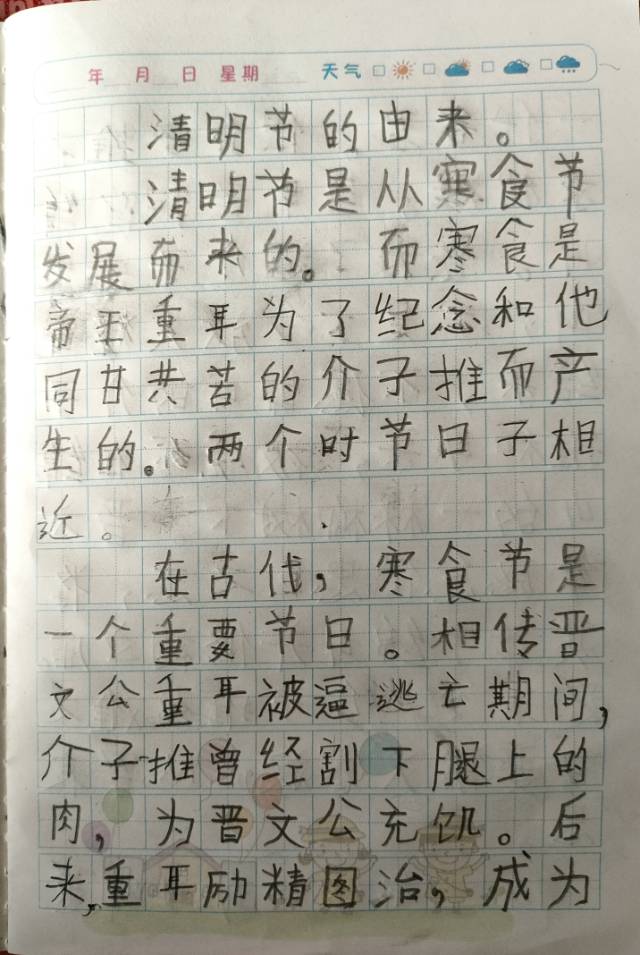 年 月 日 星期 天气
清明节的由来。
清明节是从寒食节
发展而来的。而寒食是
帝王重耳为了纪念和他
同甘共苦的介子推而产
生的。两个时节日子相
近。
在古代，寒食节是
一个重要节日。相传晋
文公重耳被逼逃亡期间，
介子推曾经割下腿上的
肉，为晋文公充饥。后
来，重耳励精图治，成为